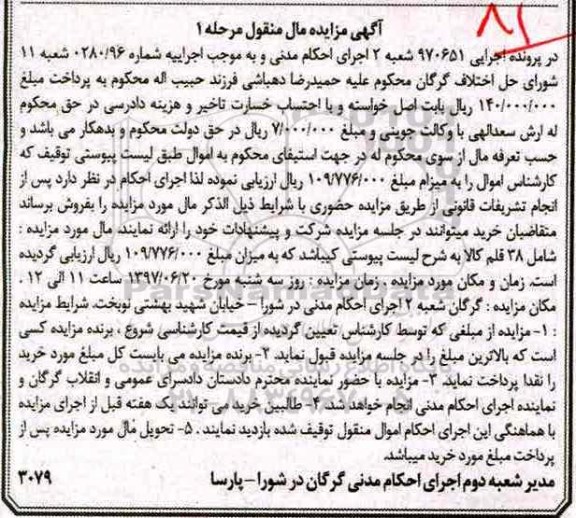 ۸۱
آگهی مزایده مال منقول مرحله ۱
در پرونده اجرایی ۹۷۰۶۵۱ شعبه ۲ اجرای احکام مدنی و به موجب اجراییه شماره ۰۲۸۰/۹۶ شعبه ۱۱
شورای حل اختلاف گرگان محکوم علیه حمیدرضا دهباشی فرزند حبیب اله محکوم به پرداخت مبلغ
۱۴۰/۰۰۰/۰۰۰ ریال بابت اصل خواسته و با احتساب خسارت تاخیر و هزینه دادرسی در حق محکوم
له ارش سعدالهی با وکالت جوینی و مبلغ ۷/۰۰۰/۰۰۰ ریال در حق دولت محکوم و بدهکار می باشد و
حسب تعرفه مال از سوی محکوم له در جهت استیفای محکوم به اموال طبق لیست پیوستی توقیف که
کارشناس اموال را به میزام مبلغ ۱۰۹/۷۷۶/۰۰۰ ریال ارزیابی نموده لذا اجرای احکام در نظر دارد پس از
انجام تشریفات قانونی از طریق مزایده حضوری با شرایط ذیل الذکر مال مورد مزایده را بفروش برساند
متقاضیان خرید میتوانند در جلسه مزایده شرکت و پیشنهادات خود را ارائه نمایند. مال مورد مزایده :
شامل ۳۸ قلم کالا به شرح لیست پیوستی کیباشد که به میزان مبلغ ۱۰۹/۷۷۶/۰۰۰ ریال ارزیابی گردیده
است. زمان و مکان مورد مزایده . زمان مزایده : روز سه شنبه مورخ ۱۳۹۷/۰۶/۲۰ ساعت ۱۱ الی ۱۲ .
مکان مزایده : گرگان شعبه ۲ اجرای احکام مدنی در شورا – خیابان شهید بهشتی نوبخت. شرایط مزایده
: ۱- مزایده از مبلغی که توسط کارشناس تعیین گردیده از قیمت کارشناسی شروع ، برنده مزایده کسی
است که بالاترین مبلغ را در جلسه مزایده قبول نماید. ۲- برنده مزایده می بایست کل مبلغ مورد خرید
را نقدا پرداخت نماید. ۳- مزایده با حضور نماینده محترم دادستان دادسرای عمومی و انقلاب گرگان و
نماینده اجرای احکام مدنی انجام خواهد شد. ۴- طالبین خرید می توانند یک هفته قبل از اجرای مزایده
با هماهنگی این اجرای احکام اموال منقول توقیف شده بازدید نمایند . ۵- تحویل مال مورد مزایده پس از
پرداخت مبلغ مورد خرید میباشد.
مدیر شعبه دوم اجرای احکام مدنی گرگان در شورا – پارسا ۳۰۷۹